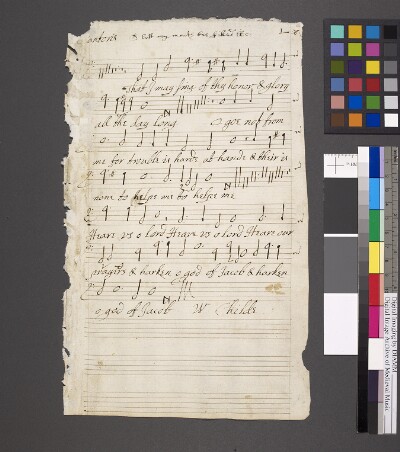 that I may sing of thy honor & glory
all the day long O goe not from
me for trouble is harde at hande & their is
none to helpe me to helpe me
Heare us o Lord Heare us o Lord Heare our
prayers & harken o god of Jacob & harken
o god of Jacob W Childe
Digital Imaging by DIAMM
Digital Image Archive of Medieval Music